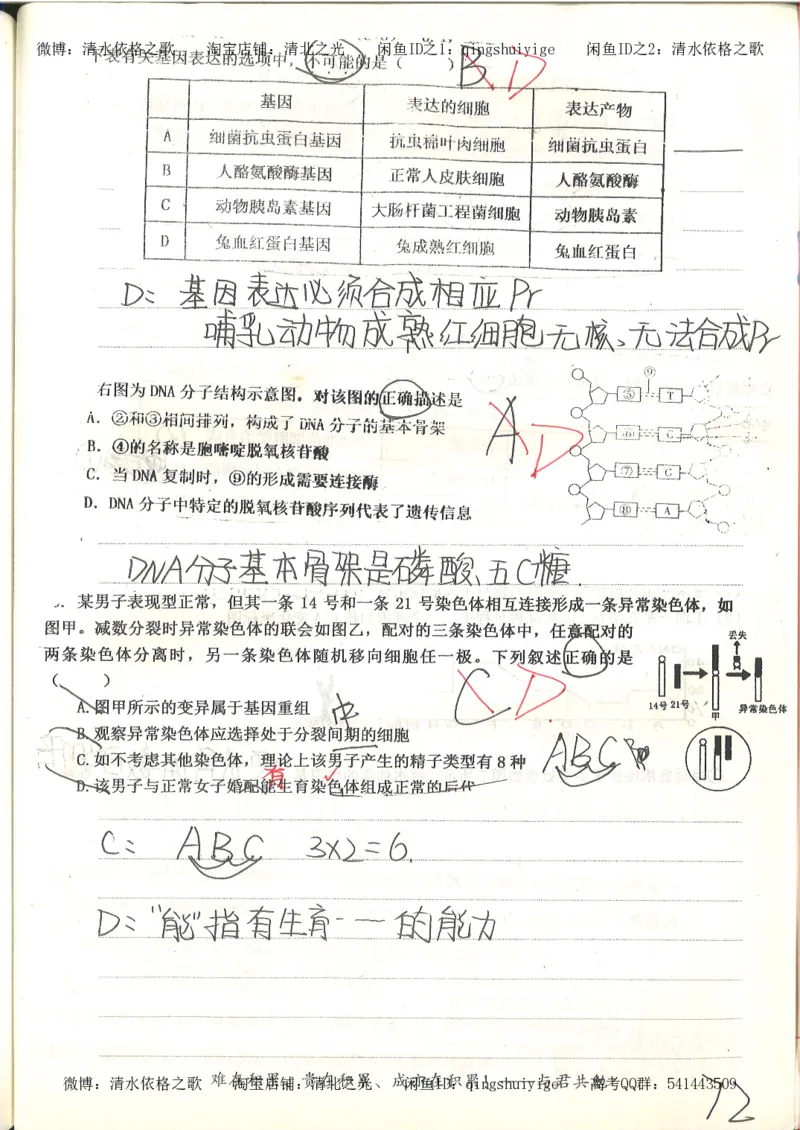 微博：清水依格之歌 淘宝店铺：清北之光 闲鱼ID之1：qingshuiyige 闲鱼ID之2：清水依格之歌
下表有关基因表达的选项中，不可能的是（ ） B D
基因 表达的细胞 表达产物
A 细菌抗虫蛋白基因 抗虫棉叶肉细胞 细菌抗虫蛋白
B 人酪氨酸酶基因 正常人皮肤细胞 人酪氨酸酶
C 动物胰岛素基因 大肠杆菌工程菌细胞 动物胰岛素
D 兔血红蛋白基因 兔成熟红细胞 兔血红蛋白
D：基因表达必须合成相应Pr
哺乳动物成熟红细胞无核、无法合成Pr
右图为 DNA 分子结构示意图。对该图的正确描述是
A．②和③相间排列，构成了 DNA 分子的基本骨架
B．④的名称是胞嘧啶脱氧核苷酸
C．当 DNA 复制时，⑨的形成需要连接酶
D．DNA 分子中特定的脱氧核苷酸序列代表了遗传信息
A D
⑨
⑤ T
⑥ G
⑦ G
⑧ A
DNA分子基本骨架是磷酸、五C糖.
某男子表现型正常，但其一条 14 号和一条 21 号染色体相互连接形成一条异常染色体，如
图甲。减数分裂时异常染色体的联会如图乙，配对的三条染色体中，任意配对的
两条染色体分离时，另一条染色体随机移向细胞任一极。下列叙述正确的是
（ ） C D
A.图甲所示的变异属于基因重组
中
B.观察异常染色体应选择处于分裂间期的细胞
C.如不考虑其他染色体，理论上该男子产生的精子类型有 8 种
有
D.该男子与正常女子婚配能生育染色体组成正常的后代
丢失
14号 21号
甲
异常染色体
ABC
C： ABC 3×2=6.
D："能"指有生育……的能力
微博：清水依格之歌 淘宝店铺：清北之光 闲鱼ID：qingshuiyige 高考QQ群：541443509
12